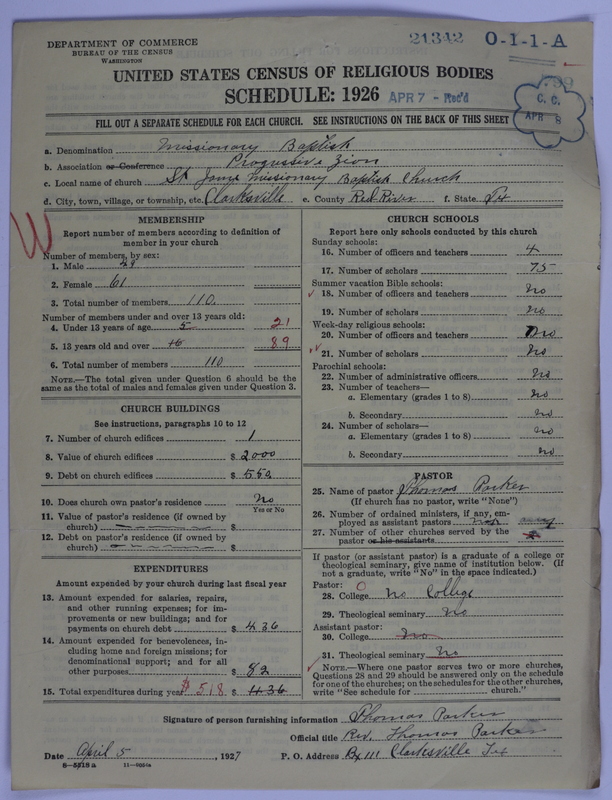 DEPARTMENT OF COMMERCE
BUREAU OF THE CENSUS
WASHINGTON
21342 O-1-1-A
UNITED STATES CENSUS OF RELIGIOUS BODIES
SCHEDULE: 1926 APR 7 - Rec'd
C. C.
APR 8
FILL OUT A SEPARATE SCHEDULE FOR EACH CHURCH. SEE INSTRUCTIONS ON THE BACK OF THIS SHEET
a. Denomination Missionary Baptist
b. Association or Conference Progressive Zion
c. Local name of church St Jams Missionary Baptist Church
d. City, town, village, or township, etc. Clarksville e. County Red River f. State Tex
W
MEMBERSHIP
Report number of members according to definition of
member in your church
Number of members, by sex:
1. Male 49
2. Female 61
3. Total number of members 110
Number of members under and over 13 years old:
4. Under 13 years of age 5 21
5. 13 years old and over 16 89
6. Total number of members 110
NOTE.—The total given under Question 6 should be the
same as the total of males and females given under Question 3.
CHURCH BUILDINGS
See instructions, paragraphs 10 to 12
7. Number of church edifices 1
8. Value of church edifices $ 2000
9. Debt on church edifices $ 550
10. Does church own pastor's residence No
Yes or No
11. Value of pastor's residence (if owned by
church) $
12. Debt on pastor's residence (if owned by
church) $
EXPENDITURES
Amount expended by your church during last fiscal year
13. Amount expended for salaries, repairs,
and other running expenses; for im-
provements or new buildings; and for
payments on church debt $ 436
14. Amount expended for benevolences, in-
cluding home and foreign missions; for
denominational support; and for all
other purposes $ 82
15. Total expenditures during year $518 $ 436
CHURCH SCHOOLS
Report here only schools conducted by this church
Sunday schools:
16. Number of officers and teachers 4
17. Number of scholars 75
Summer vacation Bible schools:
18. Number of officers and teachers No
19. Number of scholars No
Week-day religious schools:
20. Number of officers and teachers No
21. Number of scholars No
Parochial schools:
22. Number of administrative officers No
23. Number of teachers—
a. Elementary (grades 1 to 8) No
b. Secondary No
24. Number of scholars—
a. Elementary (grades 1 to 8) No
b. Secondary No
PASTOR
25. Name of pastor Thomas Parker
(If church has no pastor, write "None")
26. Number of ordained ministers, if any, em-
ployed as assistant pastors
27. Number of other churches served by the
pastor or his assistants
If pastor (or assistant pastor) is a graduate of a college or
theological seminary, give name of institution below. (If
not a graduate, write "No" in the space indicated.)
Pastor: O
28. College No College
29. Theological seminary No
Assistant pastor:
30. College No
31. Theological seminary No
NOTE.—Where one pastor serves two or more churches,
Questions 28 and 29 should be answered only on the schedule
for one of the churches; on the schedules for the other churches,
write "See schedule for church."
Signature of person furnishing information Thomas Parker
Official title Rev. Thomas Parker
Date April 5, 1927 P. O. Address Bx 111 Clarksville Tex
8-5518 a 11-9064a